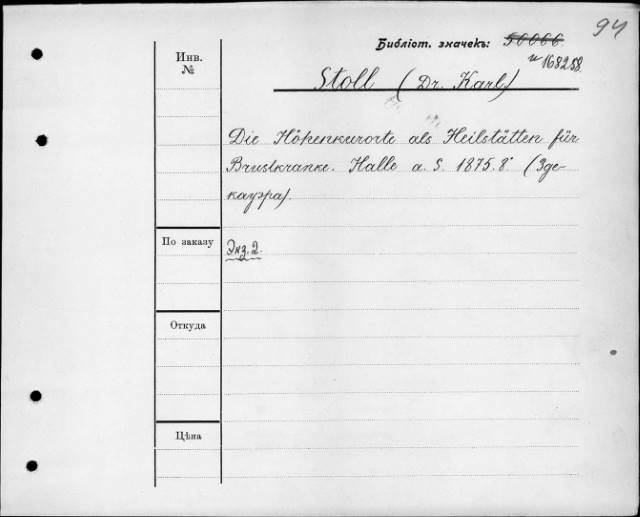 94
Библіот. значекъ: 50066
и 168258.
Инв.
№
Stoll (Dr. Karl)
Die Höhenkurorte als Heilstätten für
Brustkranke. Halle a. S. 1875. 8° (Зде-
кауэра).
По заказу
Экз. 2.
Откуда
Цѣна